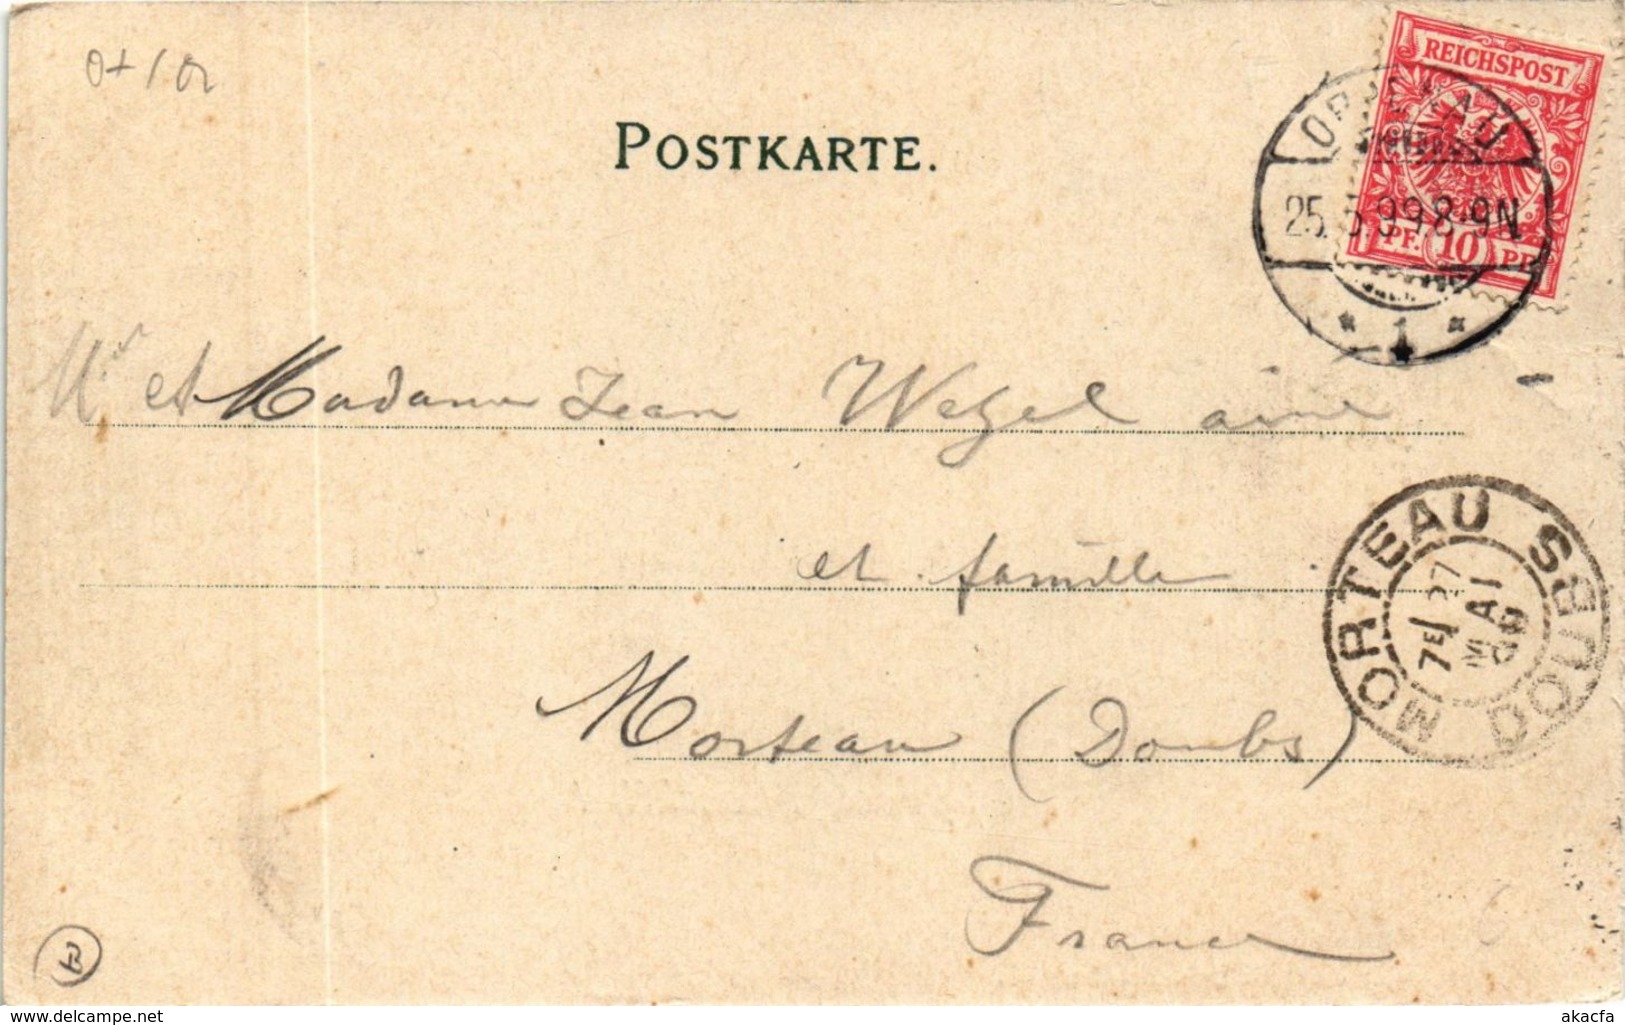 POSTKARTE.
REICHSPOST
PF. 10 PF.
25.5.99.8-9N
* 1 *
Mr et Madame Jean Wetzel ainé
et famille
MORTEAU DOUBS
7E 27
MAI
99
Morteau (Doubs)
France
www.delcampe.net
akacfa